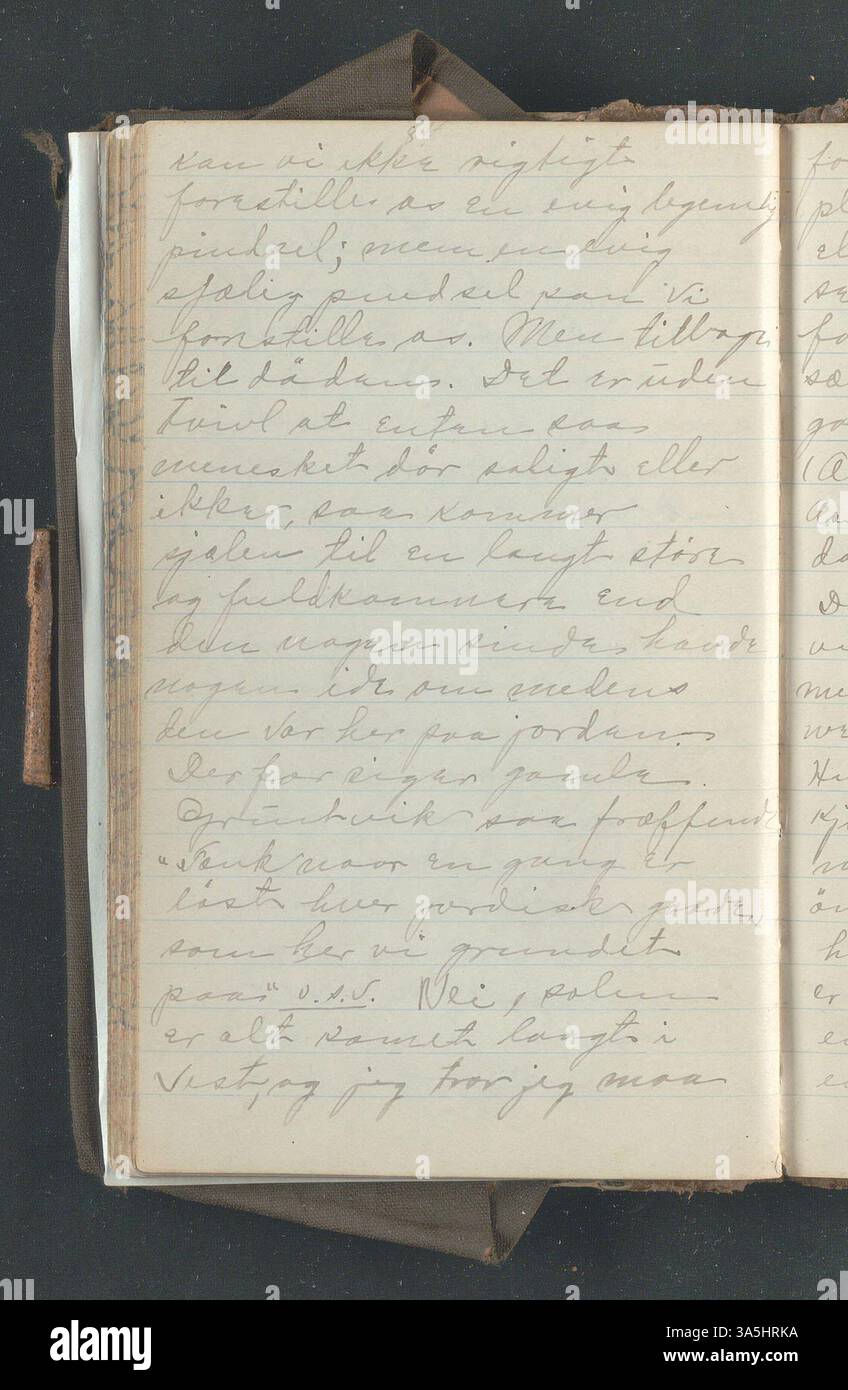 kan vi ikke rigtigt
forestille os en evig legemlig
pindsel; mem en evig
sjælig pindsel kan vi
forestille os. Men tilbage
til döden. Det er uden
Tvivl at enten saa
menesket dör saligt eller
ikke, saa kommer
sjælen til en langt större
og fuldkommere end
den nogen sinde havde
nogen ide om medens
den var her paa jorden.
Derfor siger gamle
Gruntvik saa træffende
"Tænk naar en gang er
löst hver jordisk gaade,
som her vi grundet
paa" o.s.v. Nei, solen
er alt komet langt i
Vest, og jeg tror jeg maa
fo
pl
el
se
fo
sæ
go
(A
da
D
vi
me
we
Hu
kj
ön
h
er
en
alamy
Image ID: 3A5HRKA
www.alamy.com